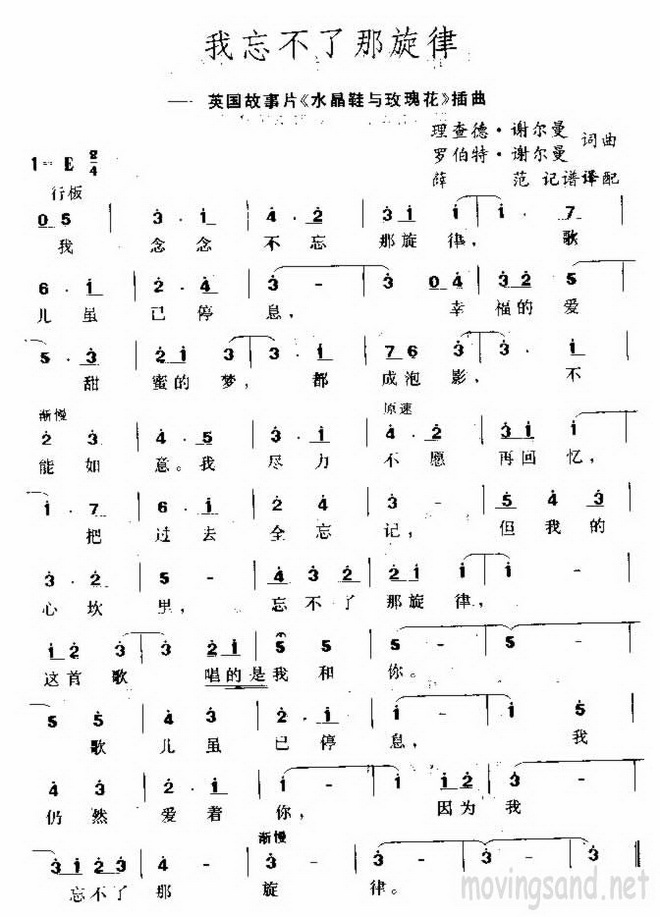 我忘不了那旋律
—— 英国故事片《水晶鞋与玫瑰花》插曲
理查德·谢尔曼 词曲
罗伯特·谢尔曼
薛 范 记谱译配
1=E 2/4
行板
0 5 3 · 1 4 · 2 3 1 1 1 · 7
我 念 念 不 忘 那 旋 律， 歌
6 · 1 2 · 4 3 - 3 0 4 3 2 5
儿 虽 已 停 息， 幸 福 的 爱
5 · 3 2 1 3 3 · 1 7 6 3 3 · 1
甜 蜜 的 梦， 都 成 泡 影， 不
渐慢 原速
2 3 4 · 5 3 · 1 4 · 2 3 1 1
能 如 意。我 尽 力 不 愿 再 回 忆，
1 · 7 6 · 1 2 4 3 - 5 4 3
把 过 去 全 忘 记， 但 我 的
3 · 2 5 - 4 3 2 2 1 1 -
心 坎 里， 忘 不 了 那 旋 律，
1 2 3 3 2 1 5 5 5 - 5 -
这 首 歌 唱 的 是 我 和 你。
5 5 4 3 2 · 1 1 - 1 5
歌 儿 虽 已 停 息， 我
4 3 2 · 1 1 - 1 1 2 3
仍 然 爱 着 你， 因 为 我
渐慢
3 1 2 3 4 - 3 - 3 - 3 -
忘 不 了 那 旋 律。
movingsand.net